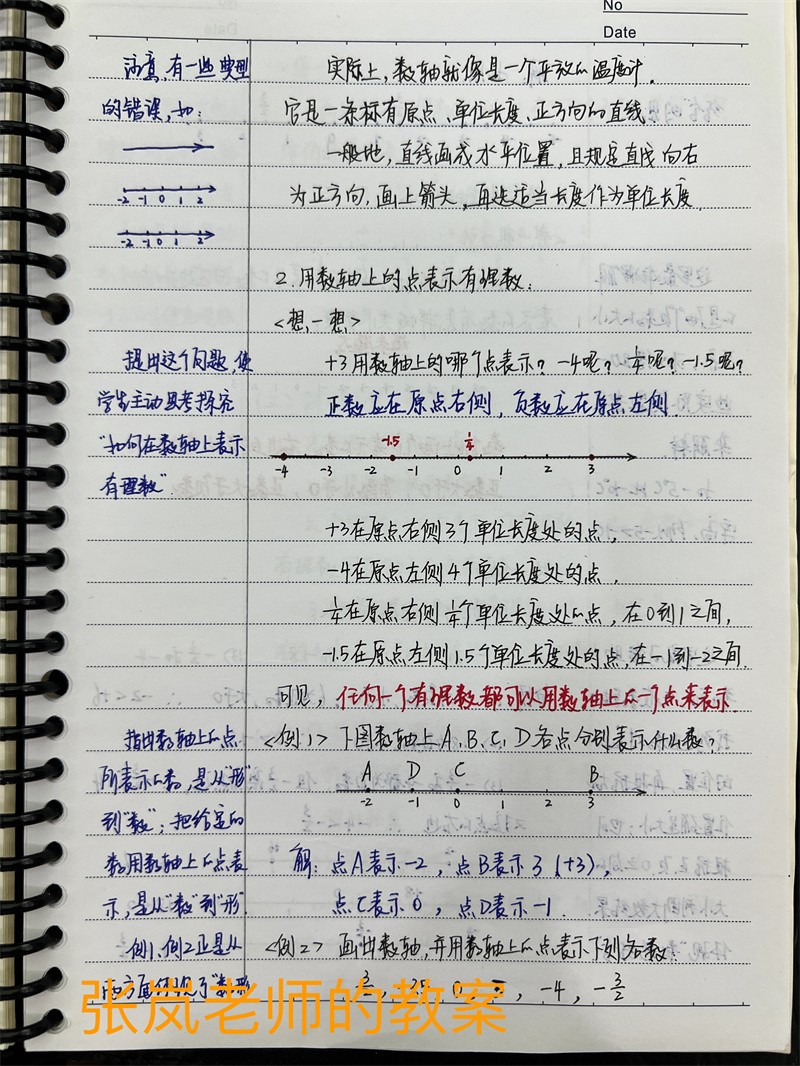 No
Date
注意,有一些典型
的错误,如:
-2 -1 0 1 2
-2 -1 0 1 2
提出这个问题,使
学生主动思考探究
“如何在数轴上表示
有理数”.
指出数轴上的点
所表示的数,是从“形”
到“数”;把给定的
数用数轴上的点表
示,是从“数”到“形”.
例1、例2正是从
两方面体现了“数形
实际上,数轴就像是一个平放的温度计.
它是一条标有原点、单位长度、正方向的直线.
一般地,直线画成水平位置,且规定直线向右
为正方向,画上箭头,再选适当长度作为单位长度.
2.用数轴上的点表示有理数:
<想一想>
+3用数轴上的哪个点表示?-4呢?1/4呢?-1.5呢?
正数应在原点右侧,负数应在原点左侧.
-1.5 1/4
-4 -3 -2 -1 0 1 2 3
+3在原点右侧3个单位长度处的点,
-4在原点左侧4个单位长度处的点,
1/4在原点右侧1/4个单位长度处的点,在0到1之间,
-1.5在原点左侧1.5个单位长度处的点,在-1到-2之间.
可见,任何一个有理数都可以用数轴上的一个点来表示.
<例1> 下图数轴上A、B、C、D各点分别表示什么数?
A D C B
-2 -1 0 1 2 3
解:点A表示-2,点B表示3(+3),
点C表示0,点D表示-1.
<例2> 画出数轴,并用数轴上的点表示下列各数:
, 0 , -4, -3/2
张岚老师的教案